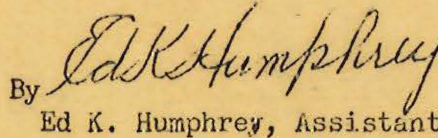 By Ed K Humphrey
Ed K. Humphrey, Assistant